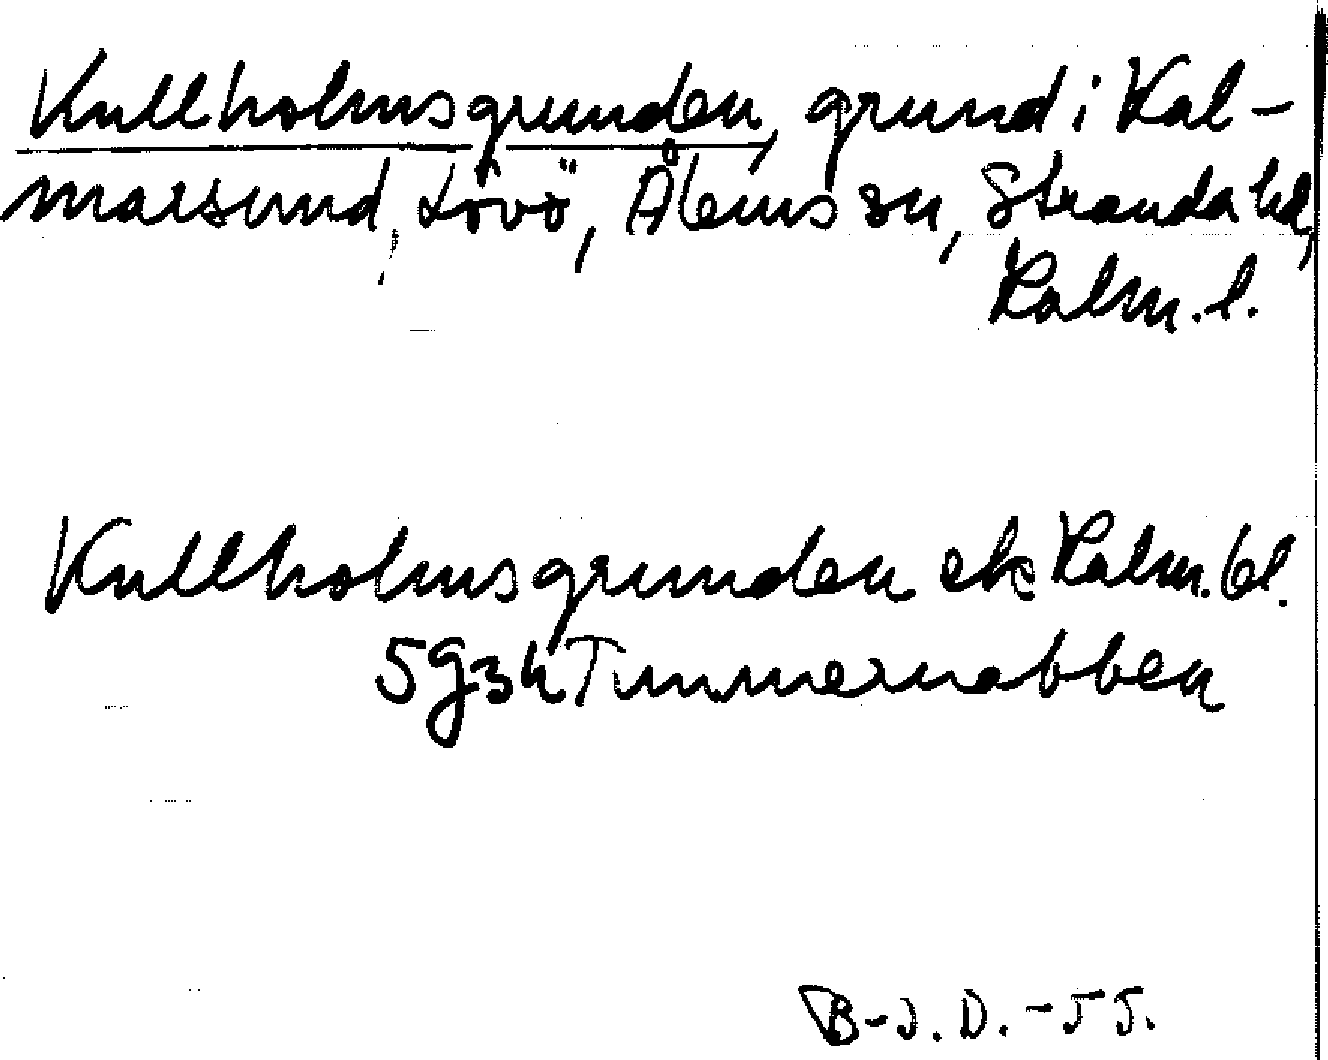 Kullholmsgrunden, grund i Kal-
marsund, Lövö, Ålems sn, Stranda hd,
Kalm. l.
Kullholmsgrunden ek Kalm. bl.
5g3h Timmernabben
B-J. D. -55.